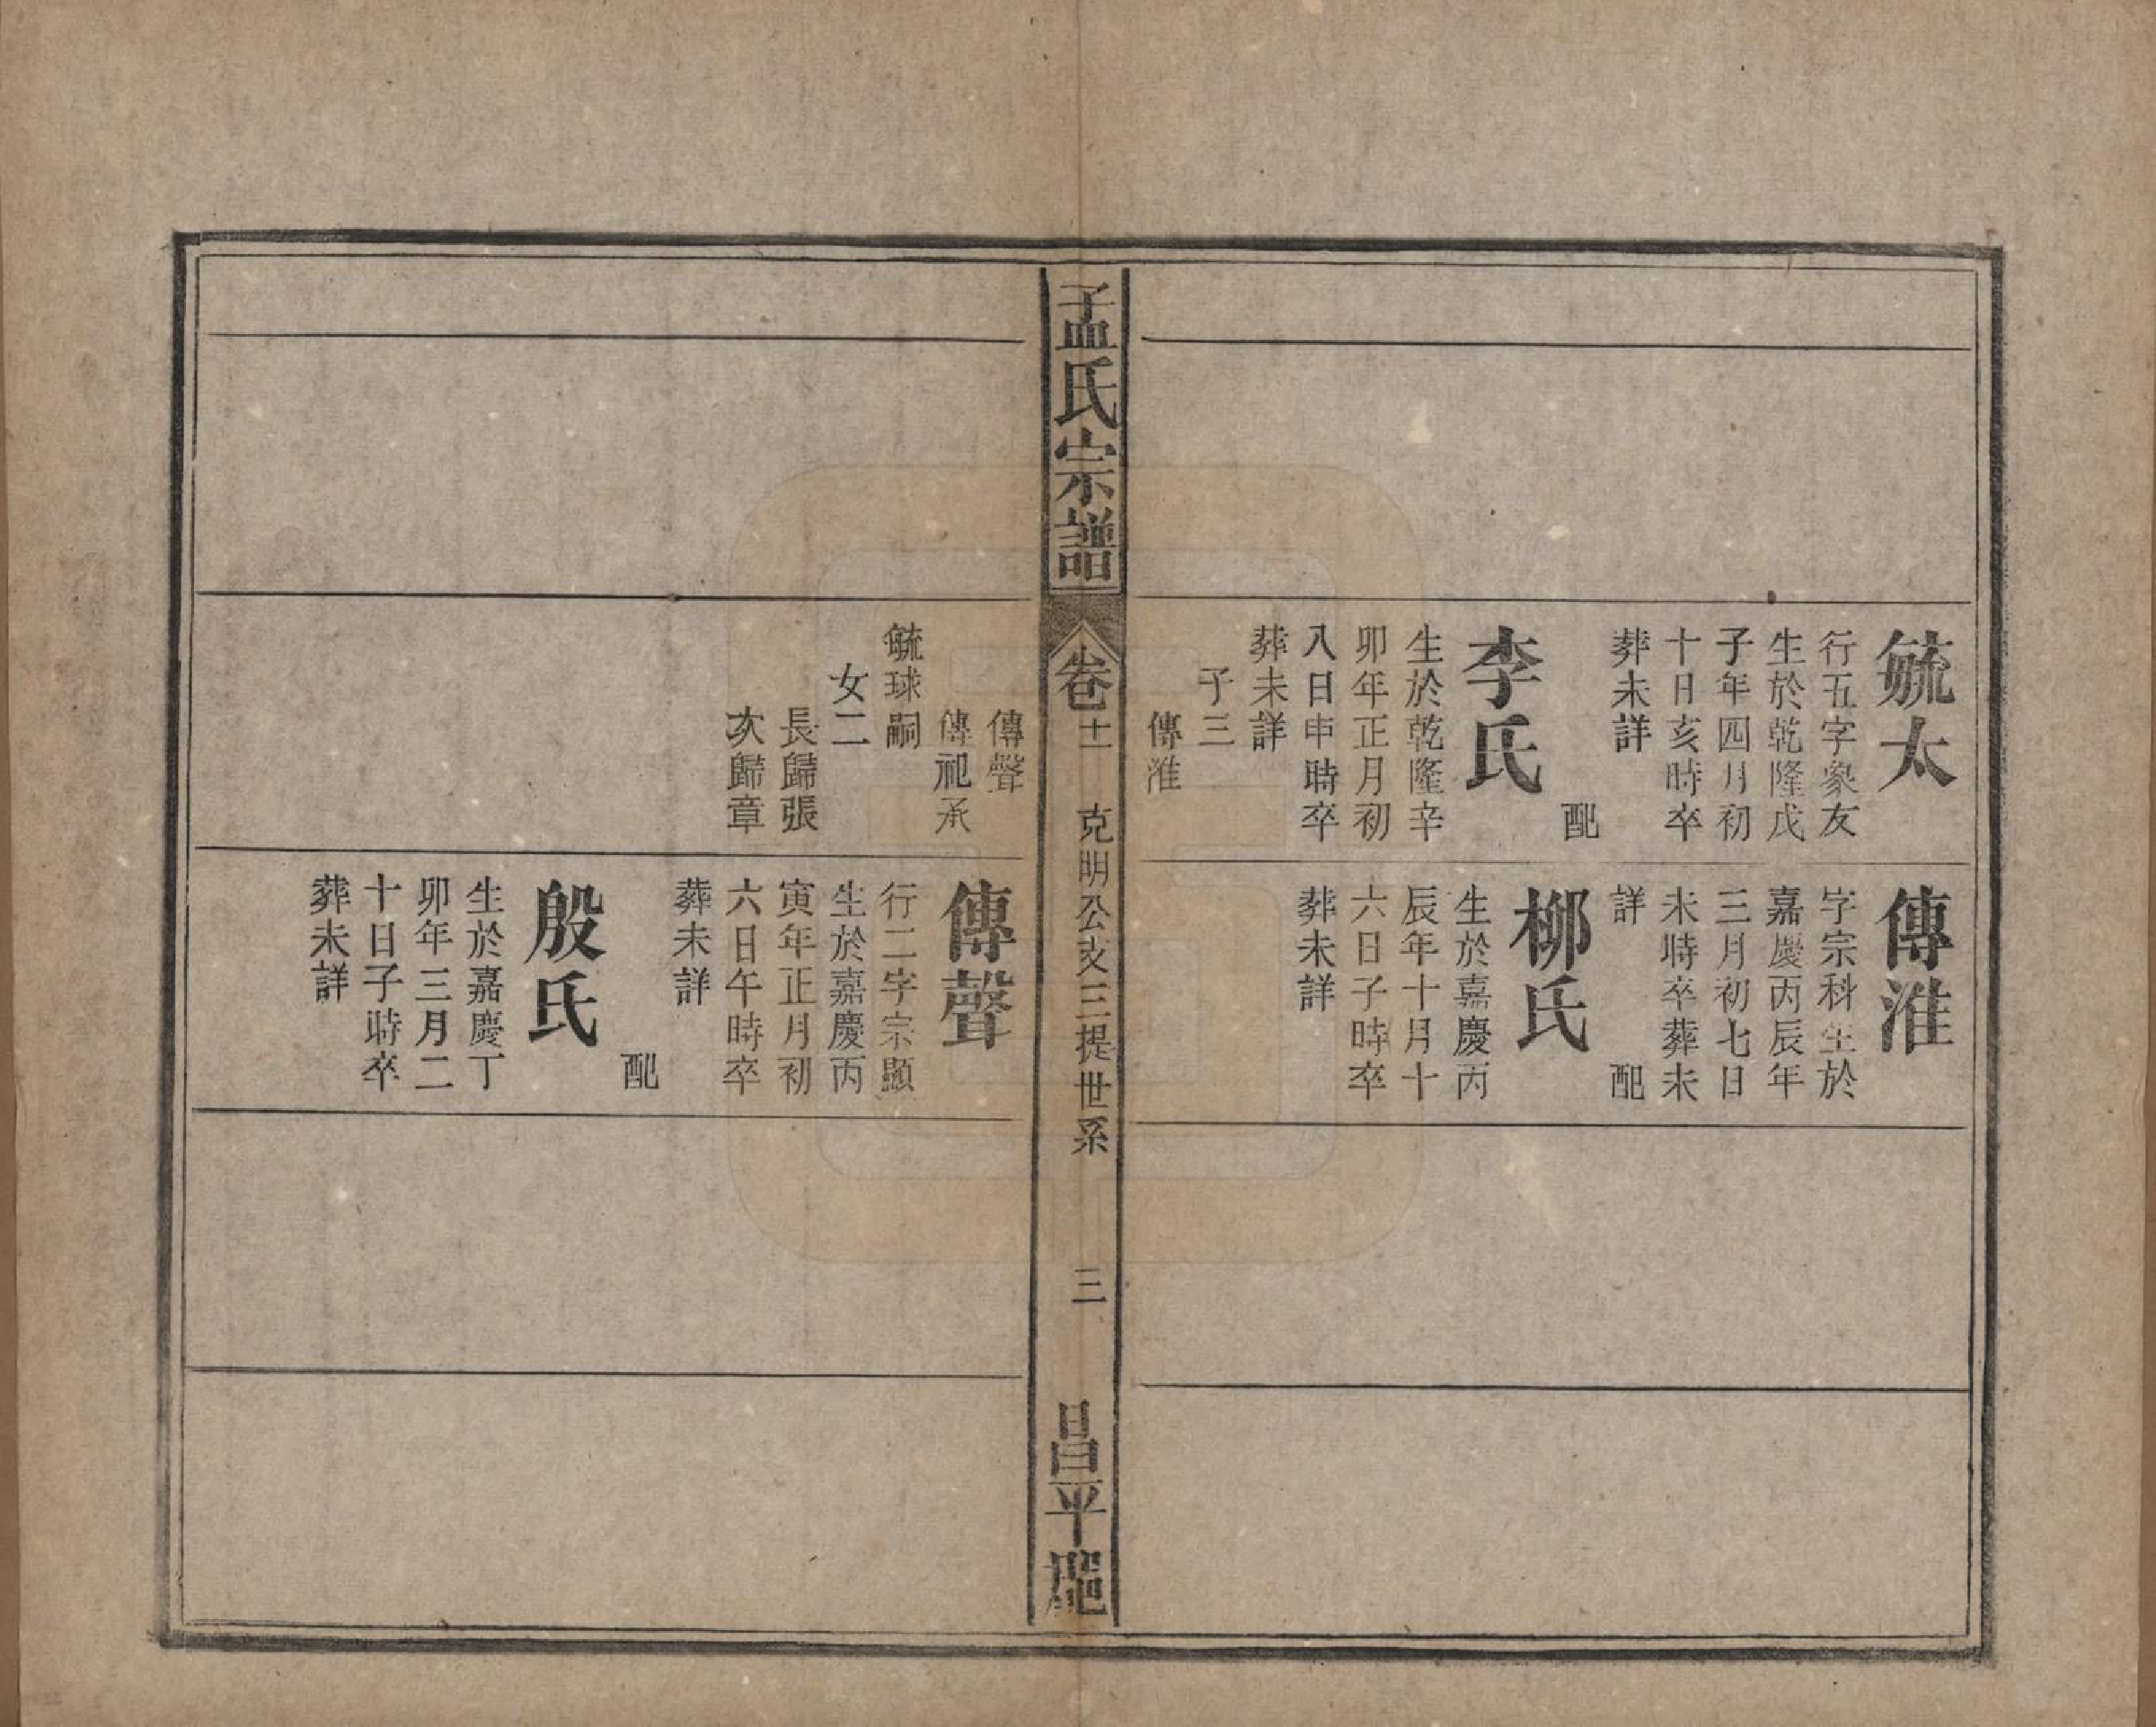 毓太
行五字象友
生於乾隆戊
子年四月初
十日亥時卒
葬未詳
配
李氏
生於乾隆辛
卯年正月初
八日申時卒
葬未詳
子三
傳淮
傳淮
字宗科生於
嘉慶丙辰年
三月初七日
未時卒葬未
詳 配
柳氏
生於嘉慶丙
辰年十月十
六日子時卒
葬未詳
孟氏宗譜
卷十一 克明公支三提世系 三
昌平
傳聲
傳祀承
毓球嗣
女二
長歸張
次歸章
傳聲
行二字宗顯
生於嘉慶丙
寅年正月初
六日午時卒
葬未詳
配
殷氏
生於嘉慶丁
卯年三月二
十日子時卒
葬未詳